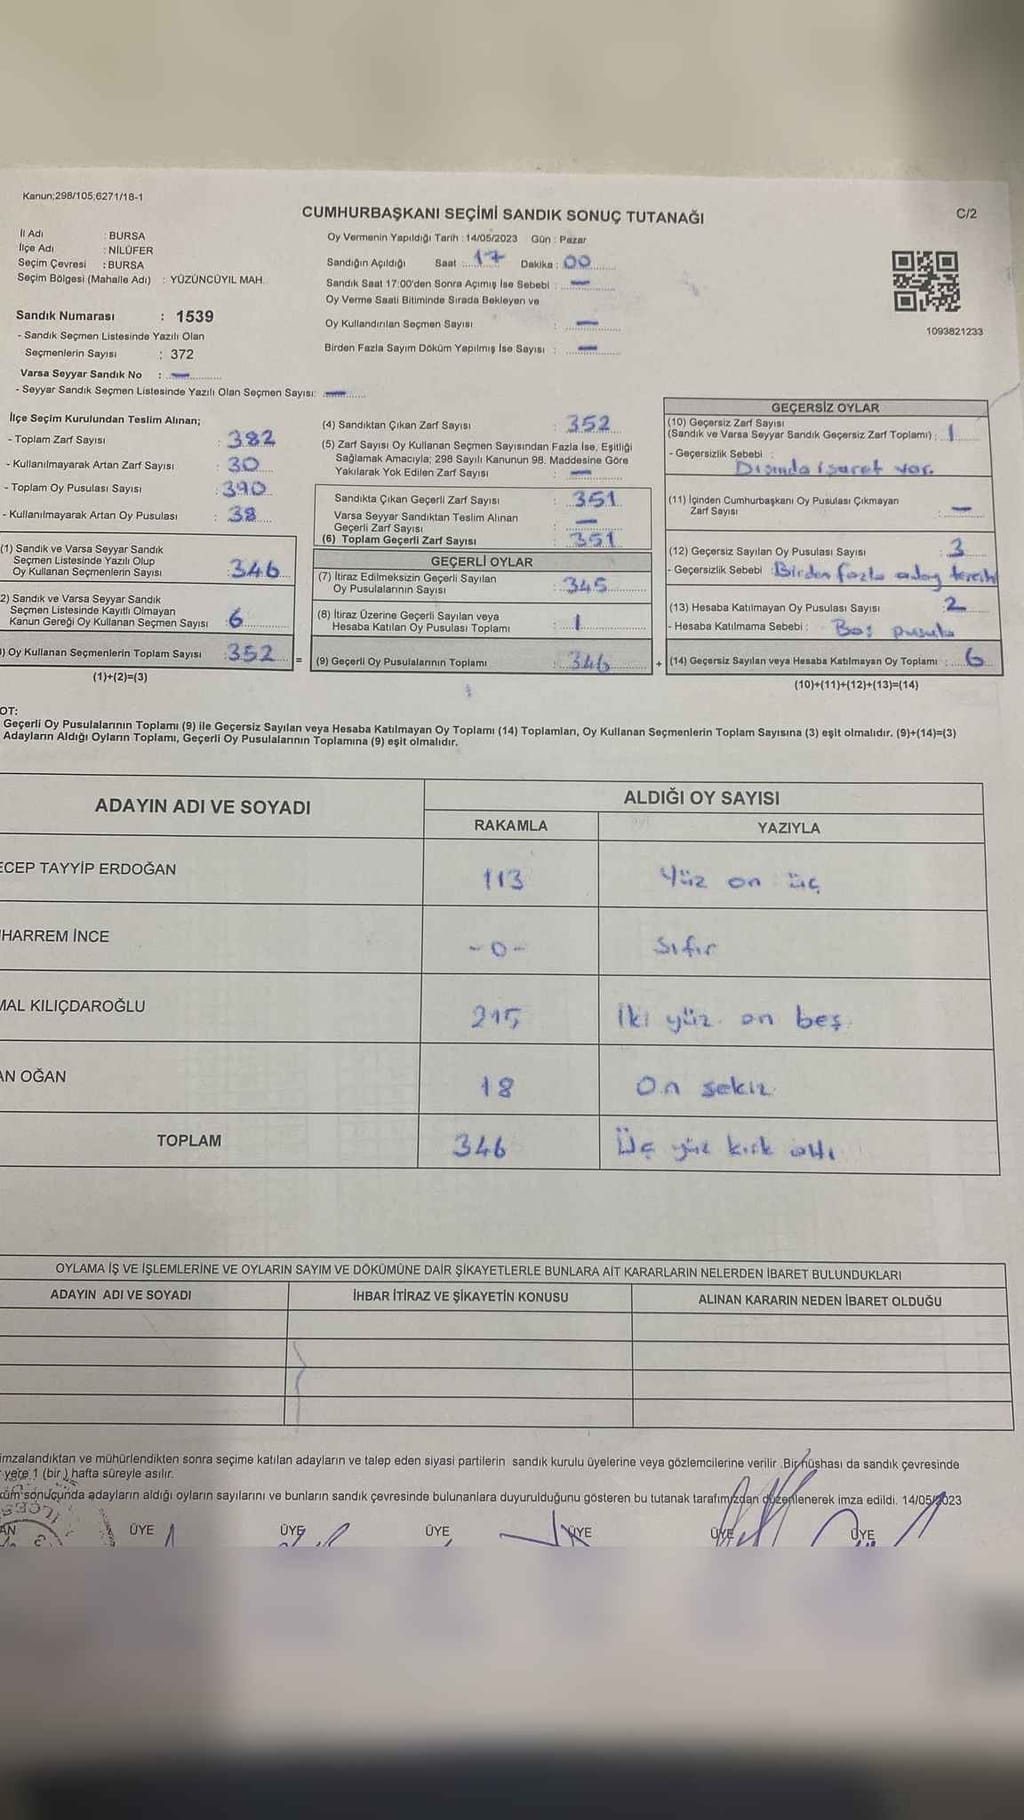 Kanun;298/105;6271/18-1
CUMHURBAŞKANI SEÇİMİ SANDIK SONUÇ TUTANAĞI
C/2
İl Adı : BURSA
İlçe Adı : NİLÜFER
Seçim Çevresi : BURSA
Seçim Bölgesi (Mahalle Adı) : YÜZÜNCÜYIL MAH.
Sandık Numarası : 1539
- Sandık Seçmen Listesinde Yazılı Olan
Seçmenlerin Sayısı : 372
Varsa Seyyar Sandık No : —
- Seyyar Sandık Seçmen Listesinde Yazılı Olan Seçmen Sayısı: —
Oy Vermenin Yapıldığı Tarih : 14/05/2023 Gün : Pazar
Sandığın Açıldığı Saat : 17 Dakika : 00
Sandık Saat 17:00'den Sonra Açımış İse Sebebi : —
Oy Verme Saati Bitiminde Sırada Bekleyen ve
Oy Kullandırılan Seçmen Sayısı : —
Birden Fazla Sayım Döküm Yapılmış İse Sayısı : —
1093821233
İlçe Seçim Kurulundan Teslim Alınan;
- Toplam Zarf Sayısı : 382
- Kullanılmayarak Artan Zarf Sayısı : 30
- Toplam Oy Pusulası Sayısı : 390
- Kullanılmayarak Artan Oy Pusulası : 38
(1) Sandık ve Varsa Seyyar Sandık
Seçmen Listesinde Yazılı Olup
Oy Kullanan Seçmenlerin Sayısı : 346
2) Sandık ve Varsa Seyyar Sandık
Seçmen Listesinde Kayıtlı Olmayan
Kanun Gereği Oy Kullanan Seçmen Sayısı : 6
) Oy Kullanan Seçmenlerin Toplam Sayısı : 352
(1)+(2)=(3)
(4) Sandıktan Çıkan Zarf Sayısı : 352
(5) Zarf Sayısı Oy Kullanan Seçmen Sayısından Fazla İse, Eşitliği
Sağlamak Amacıyla; 298 Sayılı Kanunun 98. Maddesine Göre
Yakılarak Yok Edilen Zarf Sayısı : —
Sandıkta Çıkan Geçerli Zarf Sayısı : 351
Varsa Seyyar Sandıktan Teslim Alınan
Geçerli Zarf Sayısı : —
(6) Toplam Geçerli Zarf Sayısı : 351
GEÇERLİ OYLAR
(7) İtiraz Edilmeksizin Geçerli Sayılan
Oy Pusulalarının Sayısı : 345
(8) İtiraz Üzerine Geçerli Sayılan veya
Hesaba Katılan Oy Pusulası Toplamı : 1
= (9) Geçerli Oy Pusulalarının Toplamı : 346
GEÇERSİZ OYLAR
(10) Geçersiz Zarf Sayısı
(Sandık ve Varsa Seyyar Sandık Geçersiz Zarf Toplamı) : 1
- Geçersizlik Sebebi :
Dışında işaret var.
(11) İçinden Cumhurbaşkanı Oy Pusulası Çıkmayan
Zarf Sayısı : —
(12) Geçersiz Sayılan Oy Pusulası Sayısı : 3
- Geçersizlik Sebebi : Birden fazla aday tercihi
(13) Hesaba Katılmayan Oy Pusulası Sayısı : 2
- Hesaba Katılmama Sebebi : Boş pusula
+ (14) Geçersiz Sayılan veya Hesaba Katılmayan Oy Toplamı : 6
(10)+(11)+(12)+(13)=(14)
OT:
Geçerli Oy Pusulalarının Toplamı (9) ile Geçersiz Sayılan veya Hesaba Katılmayan Oy Toplamı (14) Toplamları, Oy Kullanan Seçmenlerin Toplam Sayısına (3) eşit olmalıdır. (9)+(14)=(3)
Adayların Aldığı Oyların Toplamı, Geçerli Oy Pusulalarının Toplamına (9) eşit olmalıdır.
ADAYIN ADI VE SOYADI
ALDIĞI OY SAYISI
RAKAMLA YAZIYLA
ECEP TAYYİP ERDOĞAN 113 Yüz on üç
HARREM İNCE -0- Sıfır
MAL KILIÇDAROĞLU 215 İki yüz on beş
AN OĞAN 18 On sekiz
TOPLAM 346 Üç yüz kırk altı
OYLAMA İŞ VE İŞLEMLERİNE VE OYLARIN SAYIM VE DÖKÜMÜNE DAİR ŞİKAYETLERLE BUNLARA AİT KARARLARIN NELERDEN İBARET BULUNDUKLARI
ADAYIN ADI VE SOYADI İHBAR İTİRAZ VE ŞİKAYETİN KONUSU ALINAN KARARIN NEDEN İBARET OLDUĞU
imzalandıktan ve mühürlendikten sonra seçime katılan adayların ve talep eden siyasi partilerin sandık kurulu üyelerine veya gözlemcilerine verilir .Bir nüshası da sandık çevresinde
yere 1 (bir ) hafta süreyle asılır.
küm sonucunda adayların aldığı oyların sayılarını ve bunların sandık çevresinde bulunanlara duyurulduğunu gösteren bu tutanak tarafımızdan düzenlenerek imza edildi. 14/05/2023
AN ÜYE ÜYE ÜYE ÜYE ÜYE ÜYE